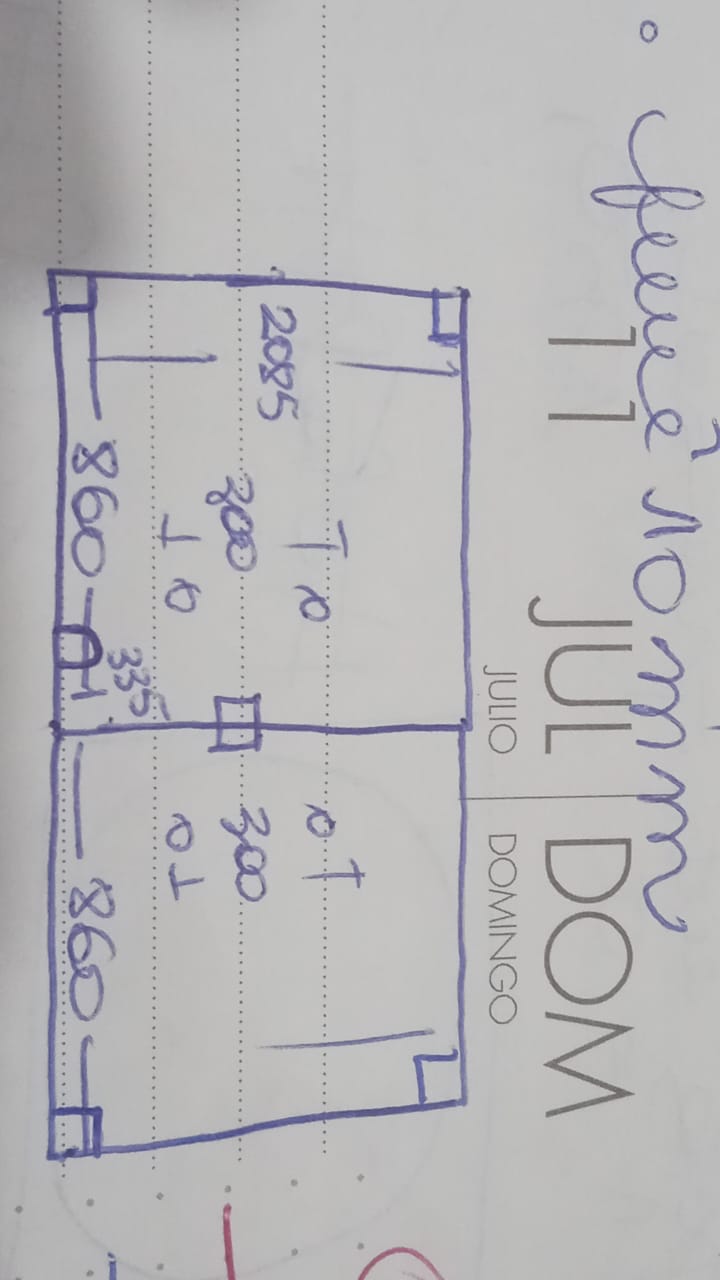 fumê 10 mm
11 JUL DOM
JULIO DOMINGO
2085
300 300
335
860 860